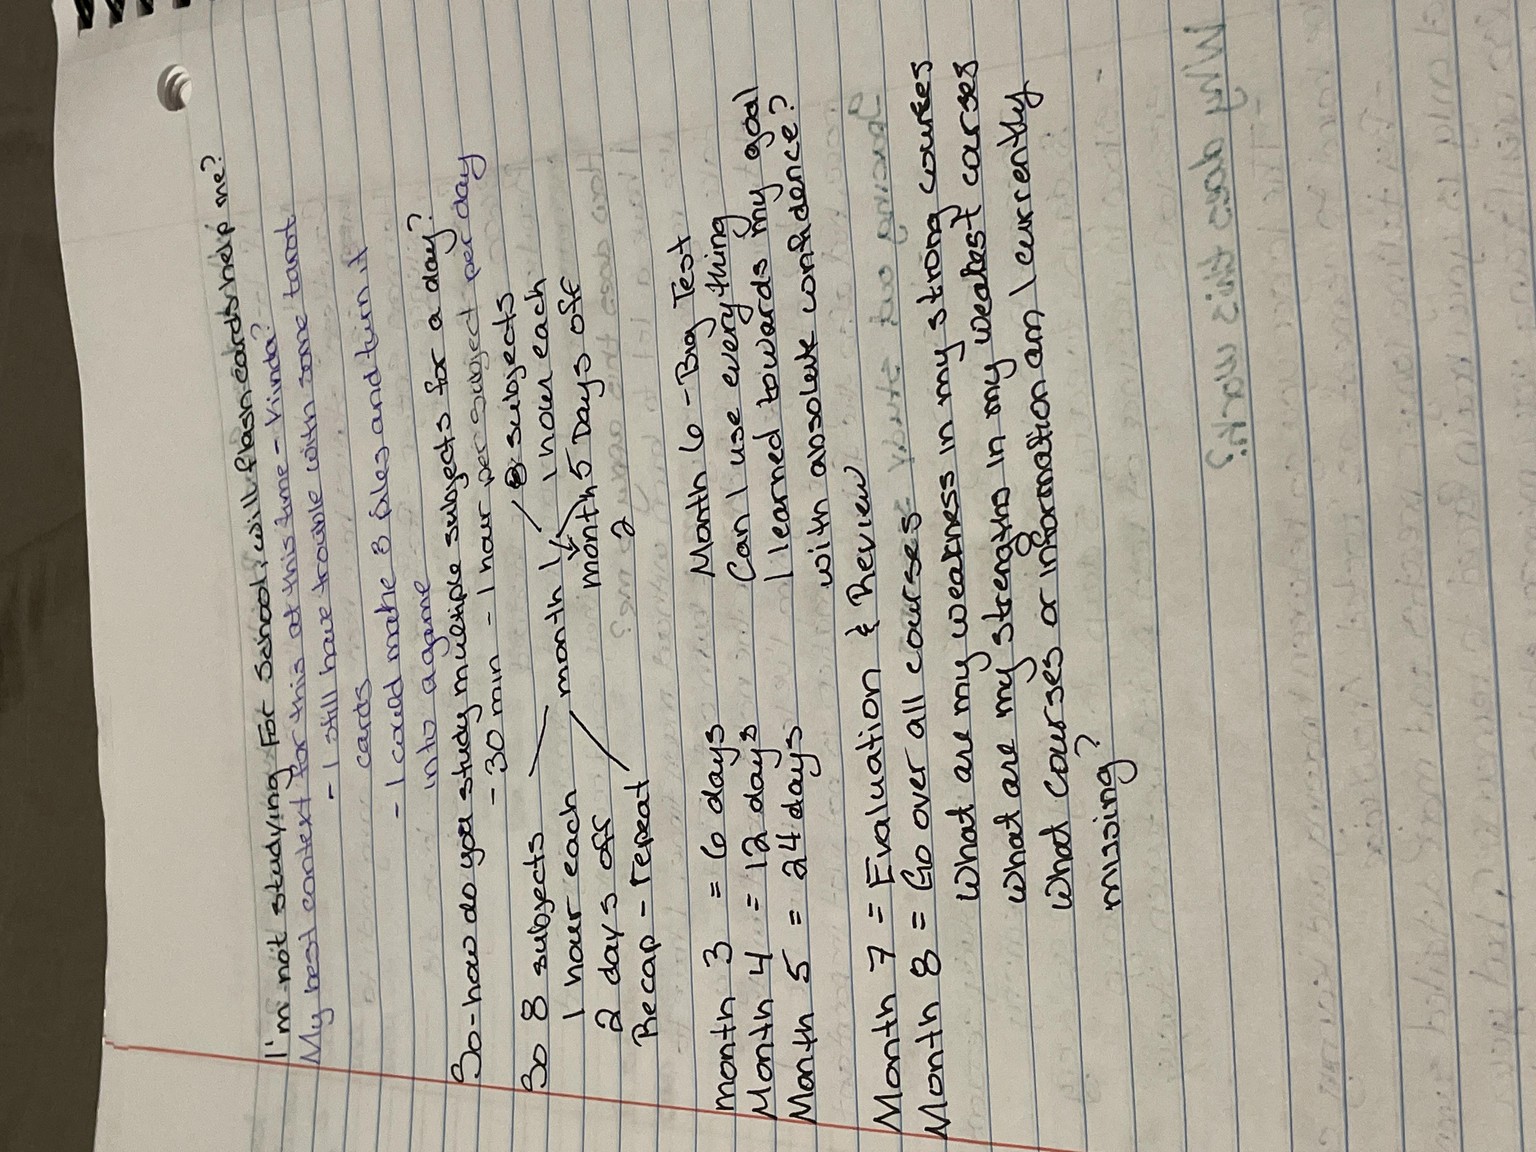 I'm not studying For school; will flashcards help me?
My best context for this at this time - kinda?
- I still have trouble with some tarot
cards
- I could make 3 piles and turn it
into a game
So-how do you study multiple subjects for a day?
- 30 min - 1 hour per subject per day
So 8 subjects
1 hour each
2 days off
Recap - repeat
month 1
8 subjects
1 hour each
month 5 Days off
2
month 3 = 6 days
Month 4 = 12 days
Month 5 = 24 days
Month 6 - Big Test
Can I use everything
I learned towards my goal
with absolute confidence?
Month 7 = Evaluation & Review
Month 8 = Go over all courses
What are my weakness in my strong courses
What are my strengths in my weakest courses
What courses or information am I currently
missing?
Why does this work?